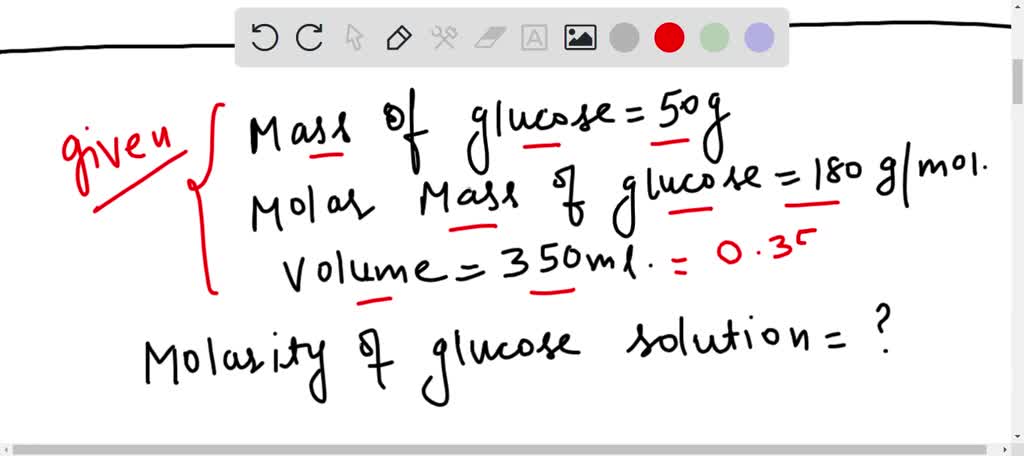 given
Mass of glucose = 50g
Molar Mass of glucose = 180 g/mol.
Volume = 350ml. = 0.35
Molarity of glucose solution = ?